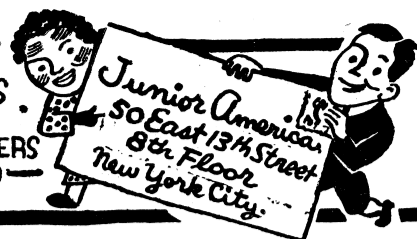 Junior America.
50 East 13th Street
8th Floor
New York City.
S.
ERS